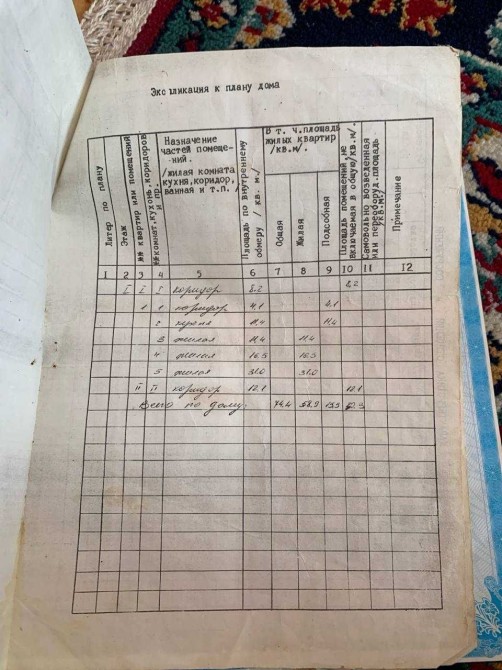 Экспликация к плану дома
Литер по плану
Этаж
№№ квартир или помещений
№№ комнат, кухонь, коридоров и пр.
Назначение
частей помеще-
ний.
/жилая комната
кухня,коридор,
ванная и т.п. /
Площадь по внутреннему
обмеру / кв. м /
В т. ч.площадь
жилых квартир
/кв.м/.
Общая
Жилая
Подсобная
Площадь помещений,не
включаемая в общую/кв.м/.
Самовольно возведенная
или переоборуд.площадь
/кв.м/.
Примечание
I 2 3 4 5 6 7 8 9 10 11 12
I I I коридор 8.2 8.2
1 1 коридор 4.1 4.1
2 кухня 11.4 11.4
3 жилая 11.4 11.4
4 жилая 16.5 16.5
5 жилая 31.0 31.0
II II коридор 12.1 12.1
Всего по дому: 74.4 58.9 15.5 20.3